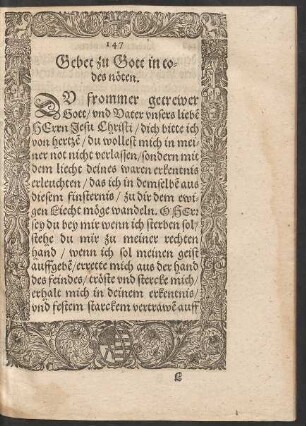 147
Gebet zu Gott in to-
des nöten.
DV frommer getrewer
Gott/ vnd Vater vnsers liebẽ
HErrn Jesu Christi/ dich bitte ich
von hertzẽ/ du wollest mich in mei-
ner not nicht verlassen/ sondern mit
dem liecht deines waren erkentnis
erleuchten/ das ich in demselbẽ aus
diesem finsternis/ zu dir dem ewi-
gen Liecht möge wandeln. O HErr
sey du bey mir wenn ich sterben sol/
stehe du mir zu meiner rechten
hand/ wenn ich sol meinen geist
auffgebẽ/ errette mich aus der hand
des feindes/ tröste vnd stercke mich/
erhalt mich in deinem erkentnis/
vnd festem starckem vertrawẽ auff